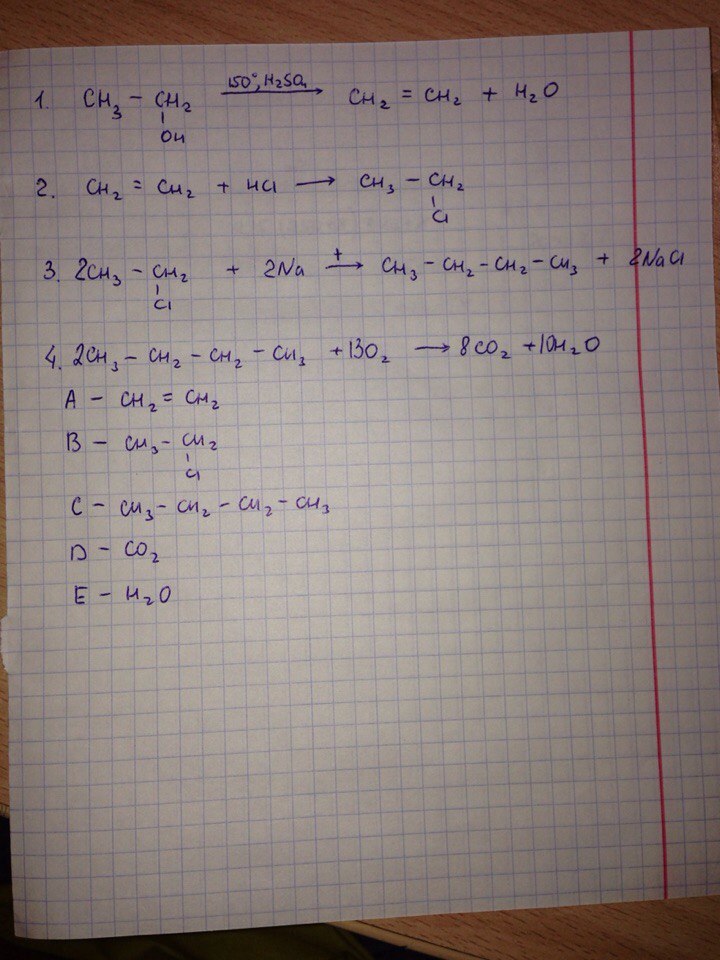 1. CH₃ – CH₂ 150°, H₂SO₄ → CH₂ = CH₂ + H₂O
OH
2. CH₂ = CH₂ + HCl → CH₃ – CH₂
Cl
3. 2CH₃ – CH₂ + 2Na t → CH₃ – CH₂ – CH₂ – CH₃ + 2NaCl
Cl
4. 2CH₃ – CH₂ – CH₂ – CH₃ + 13O₂ → 8CO₂ + 10H₂O
A – CH₂ = CH₂
B – CH₃ – CH₂
Cl
C – CH₃ – CH₂ – CH₂ – CH₃
D – CO₂
E – H₂O